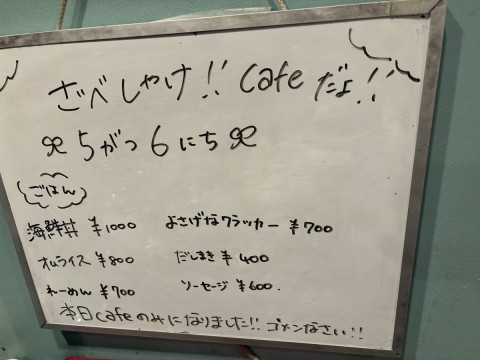 ざべしゃけ!! cafeだよ!!
5がつ6にち
ごはん
海鮮丼 ¥1000 よさげなクラッカー ¥700
オムライス ¥800 だしまき ¥400
らーめん ¥700 ソーセージ ¥600.
本日cafeのみになりました!! ゴメンなさい!!